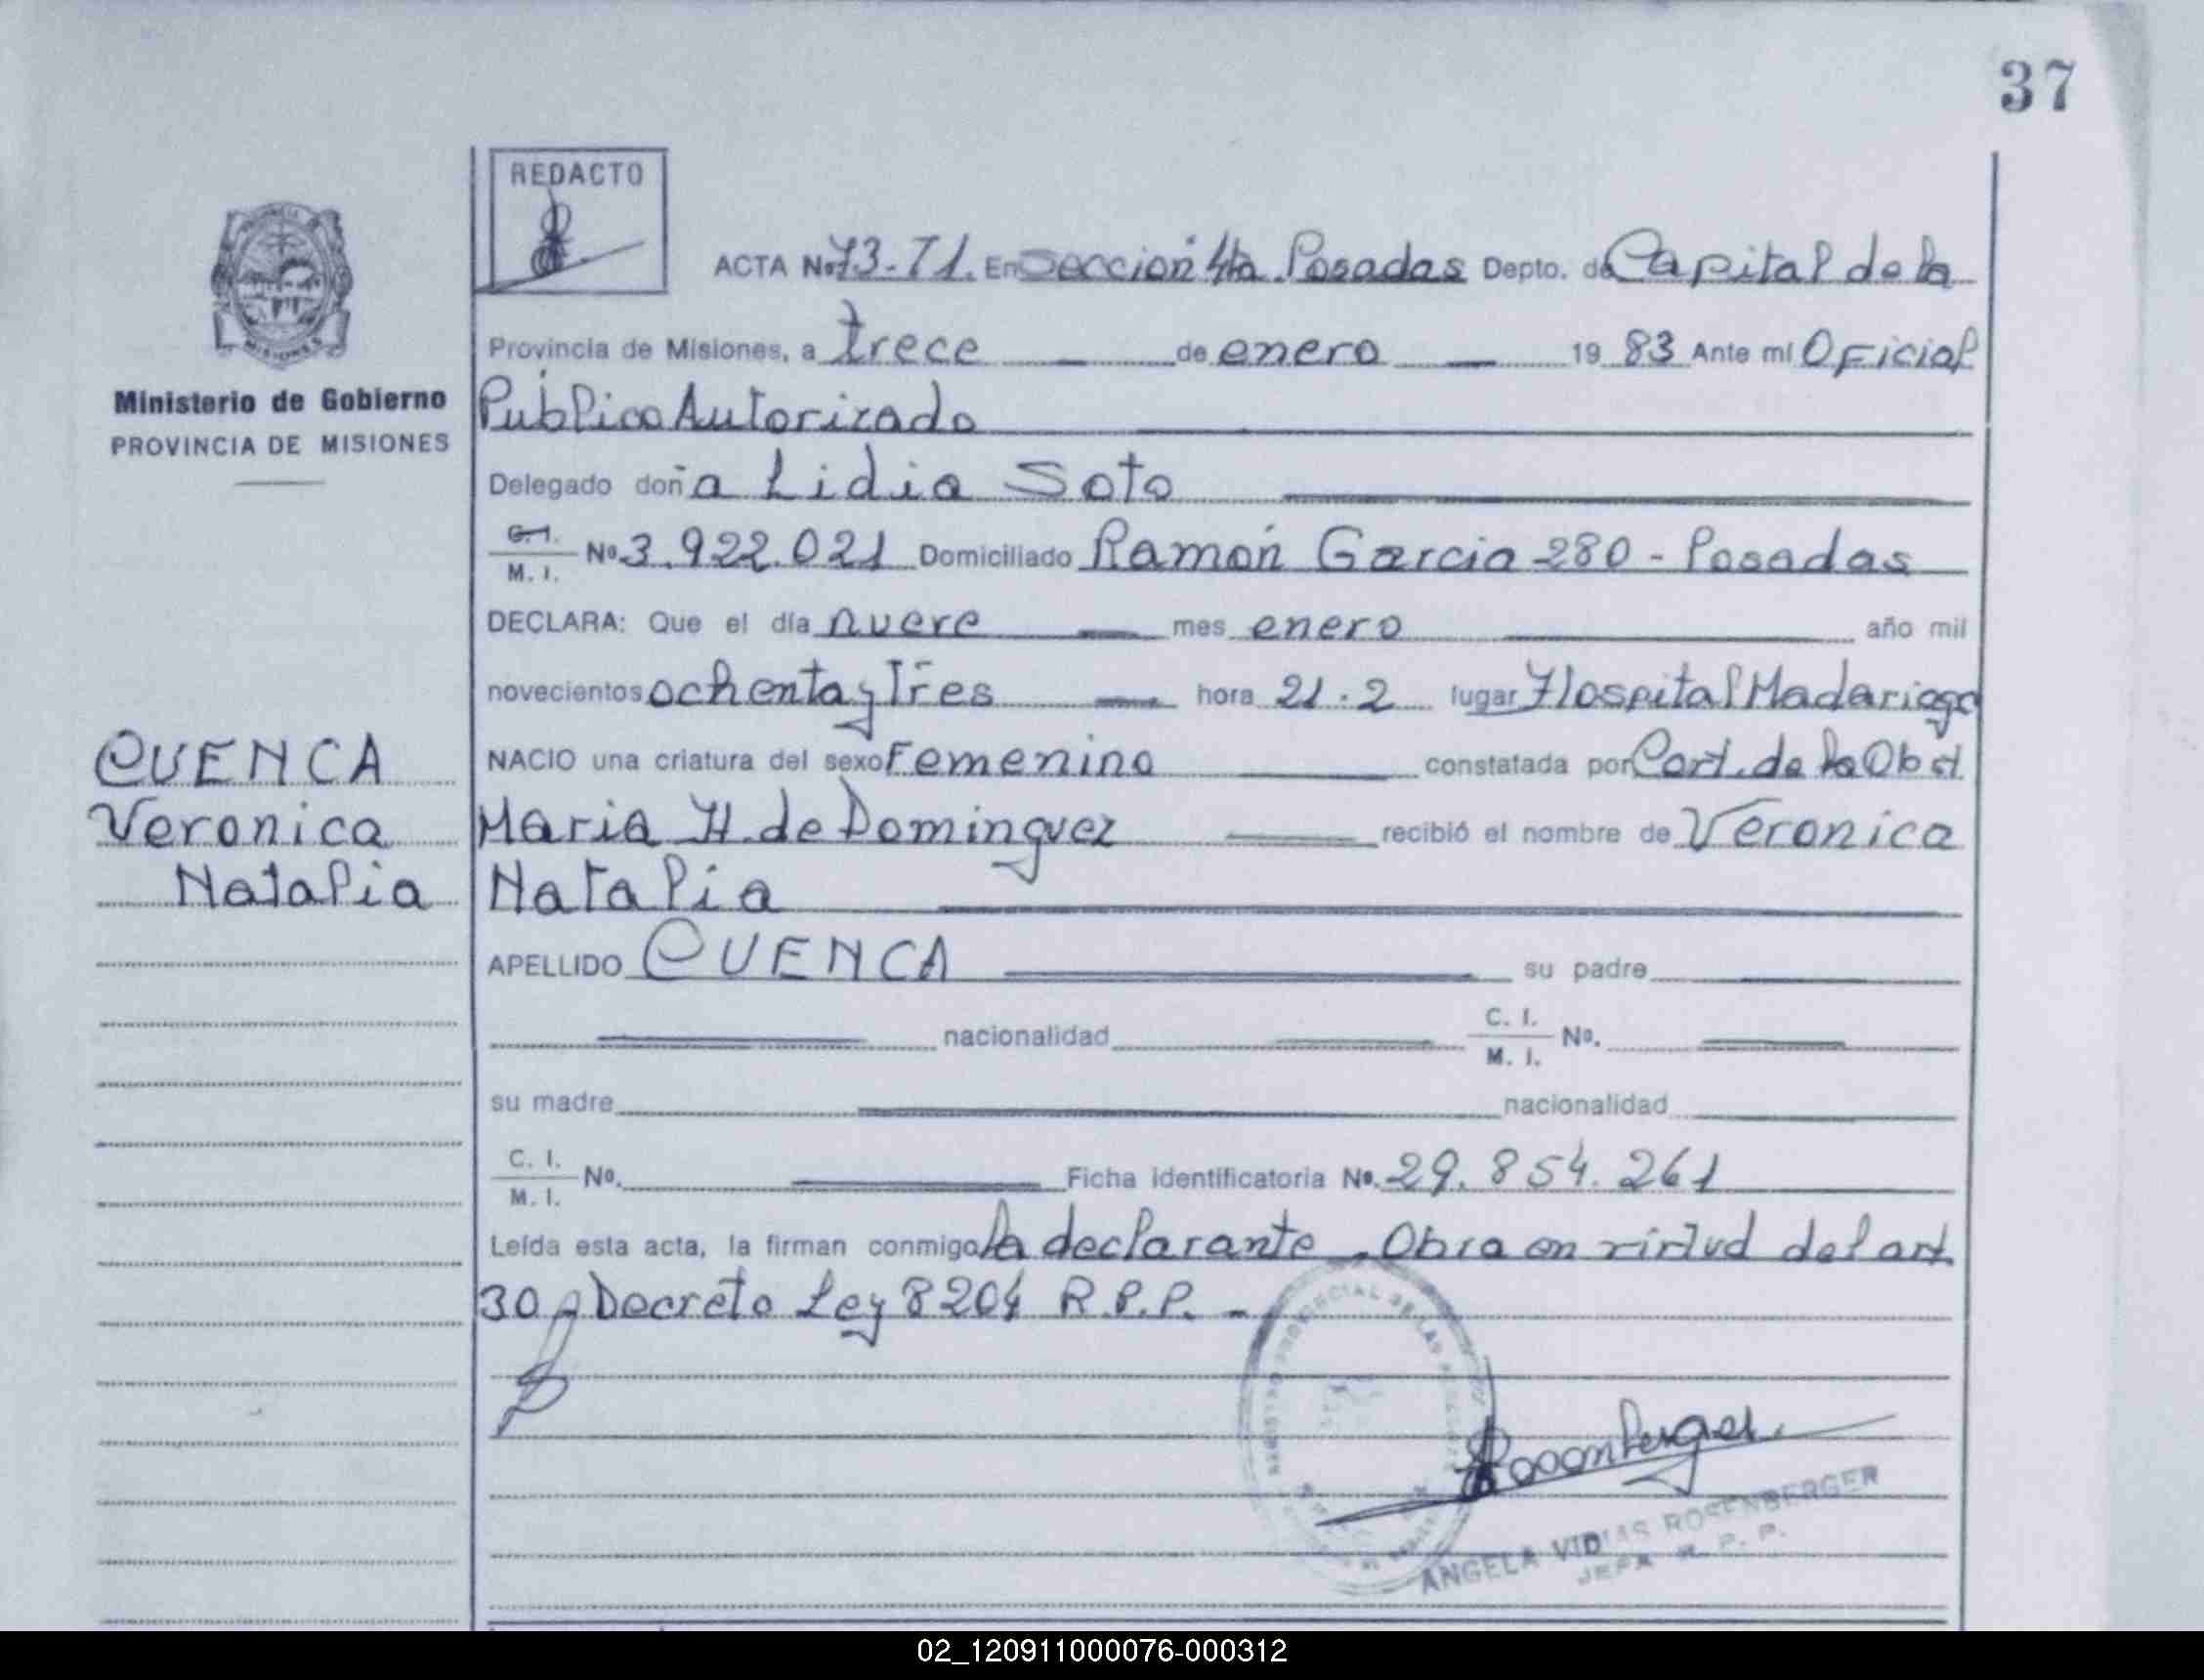 37
REDACTO
ACTA No 73-T1. En Seccion 4ta. Posadas Depto. de Capital de la
Provincia de Misiones, a trece de enero 19 83 Ante mí Oficial
Ministerio de Gobierno
PROVINCIA DE MISIONES
Público Autorizado
Delegado doña Lidia Soto
C.I.
M. I. No 3.922.021 Domiciliado Ramón Garcia 280 - Posadas
DECLARA: Que el día nueve mes enero año mil
novecientos ochenta y Tres hora 21.2 lugar Hospital Madariaga
NACIO una criatura del sexo Femenino constatada por Cert. de la Obst
Maria H. de Dominguez recibió el nombre de Veronica
Natalia
CUENCA
Veronica
Natalia
APELLIDO CUENCA su padre
nacionalidad C. I.
M. I. No.
su madre nacionalidad
C. I.
M. I. No. Ficha identificatoria No. 29.854.261
Leída esta acta, la firman conmigo la declarante. Obra en virtud del art
30 Decreto Ley 8204 R.P.P. -
ANGELA VIDMAS ROSENBERGER
JEFA R. P. P.
02_120911000076-000312